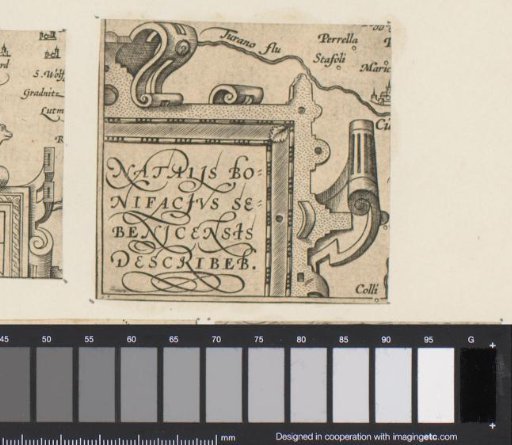 Turano flu
Perrella
Stafoli
S. Wolf
Gradnitz
Lutm
NATALIS BO-
NIFACIVS SE-
BENICENSIS
DESCRIBEB.
Colli
45 50 55 60 65 70 75 80 85 90 95 G
mm
Designed in cooperation with imagingetc.com